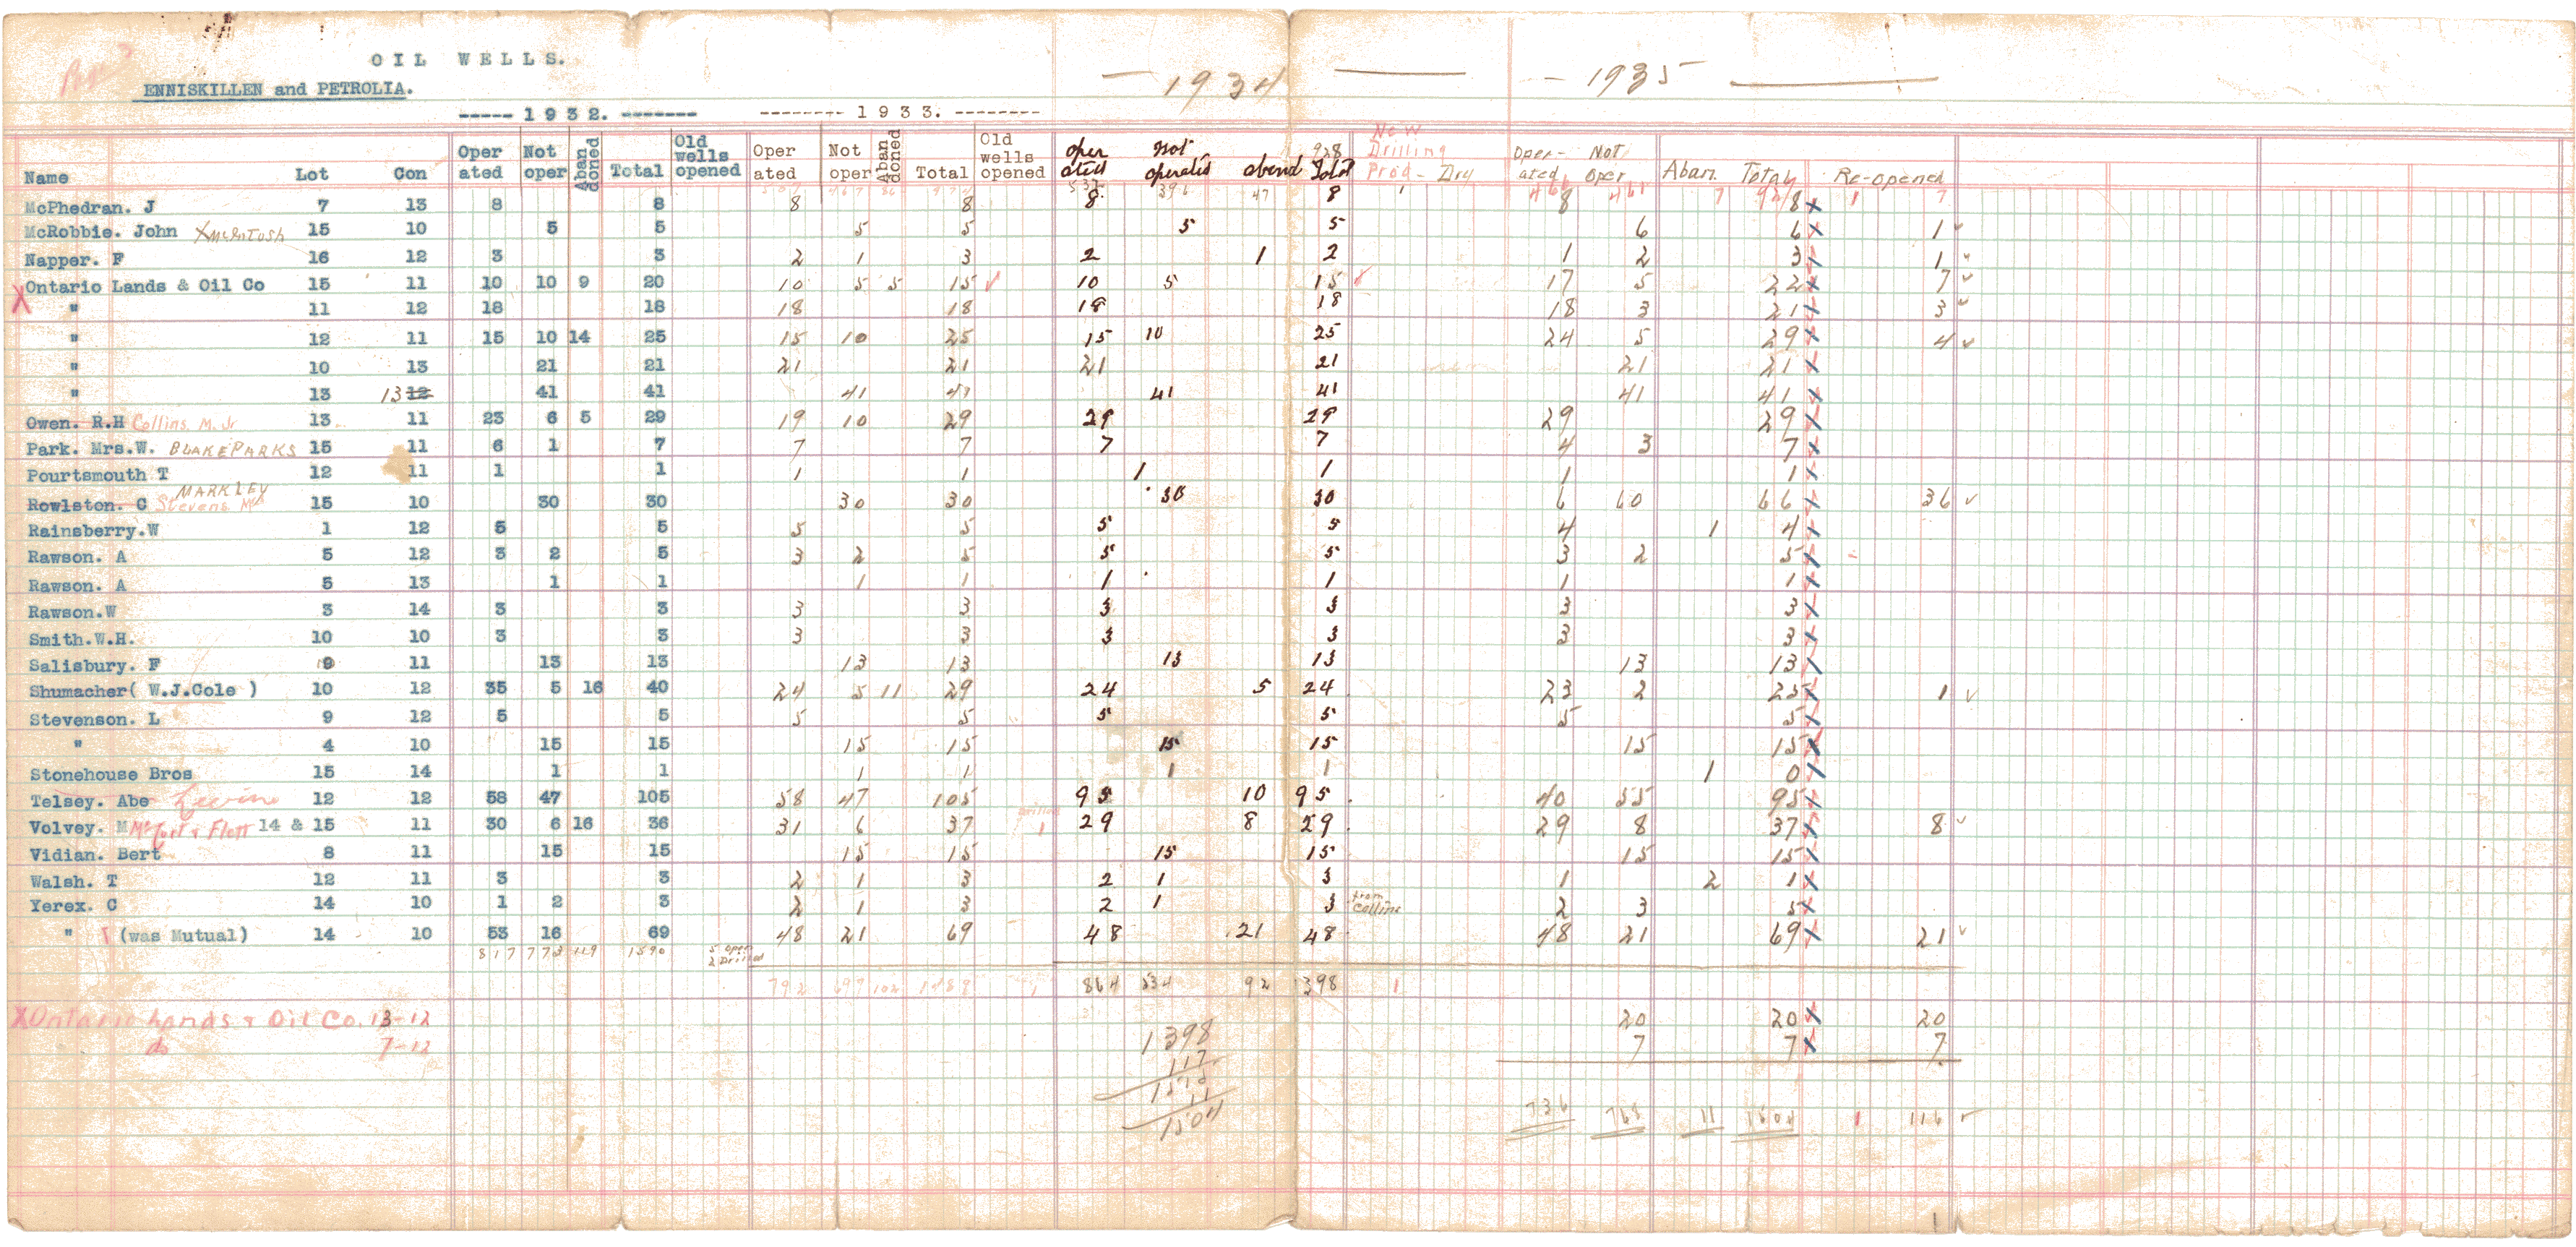 OIL WELLS.
ENNISKILLEN and PETROLIA.
1934 1935
----- 1 9 3 2. ------- -------- 1 9 3 3. --------
Name Lot Con Oper ated Not oper Aban doned Total Old wells opened Oper ated Not oper Aban doned Total Old wells opened oper ated not operated aband 928 Total New Drilling Prod - Dry Oper- ated Not Oper Aban. Total Re-opened
McPhedran. J 7 13 8 8 8 8 8 47 8 1 8 7 8 x 1 7
McRobbie. John x McIntosh 15 10 5 5 5 5 5 5 6 6 x 1 ✓
Napper. F 16 12 3 3 2 1 3 2 1 2 1 2 3 x 1 ✓
X Ontario Lands & Oil Co 15 11 10 10 9 20 10 5 5 15 ✓ 10 5 15 ✓ 17 5 22 x 7 ✓
" 11 12 18 18 18 18 18 18 18 3 21 x 3 ✓
" 12 11 15 10 14 25 15 10 25 15 10 25 24 5 29 x 4 ✓
" 10 13 21 21 21 21 21 21 21 21 x
" 13 13 12 41 41 41 41 41 41 41 41 x
Owen. R.H Collins. M. Jr 13 11 23 6 5 29 19 10 29 29 29 29 29 x
Park. Mrs.W. BLAKE PARKS 15 11 6 1 7 7 7 7 7 4 3 7 x
Pourtsmouth T 12 11 1 1 1 1 1 1 1 1 x
MARKLEY
Rowlston. C Stevens 15 10 30 30 30 30 30 30 6 60 66 x 36 ✓
Rainsberry.W 1 12 5 5 5 5 5 5 4 1 4 x
Rawson. A 5 12 3 2 5 3 2 5 5 5 3 2 5 x
Rawson. A 5 13 1 1 1 1 1 1 1 1 x
Rawson.W 3 14 3 3 3 3 3 3 3 3 x
Smith.W.H. 10 10 3 3 3 3 3 3 3 3 x
Salisbury. F 9 11 13 13 13 13 13 13 13 13 x
Shumacher( W.J.Cole ) 10 12 35 5 16 40 24 5 11 29 24 5 24 23 2 25 x 1 ✓
Stevenson. L 9 12 5 5 5 5 5 5 5 5 x
" 4 10 15 15 15 15 15 15 15 15 x
Stonehouse Bros 15 14 1 1 1 1 1 1 1 0 x
Telsey. Abe Levine 12 12 58 47 105 58 47 105 95 10 95 40 55 95 x
Volvey. M & Flott 14 & 15 11 30 6 16 36 31 6 37 Drilled 1 29 8 29 29 8 37 x 8 ✓
Vidian. Bert 8 11 15 15 15 15 15 15 15 15 x
Walsh. T 12 11 3 3 2 1 3 2 1 3 1 2 1 x
Yerex. C 14 10 1 2 3 2 1 3 2 1 3 from Collins 2 3 5 x
" (was Mutual) 14 10 53 16 69 48 21 69 48 21 48 48 21 69 x 21 ✓
817 773 119 1590 5 open 2 Drilled
792 697 102 1489 1 864 534 92 1398 1
X Ontario Lands & Oil Co. 13-12 20 20 x 20
do 7-12 7 7 x 7
1398
117
11
1504
736 768 11 1504 1 116 ✓